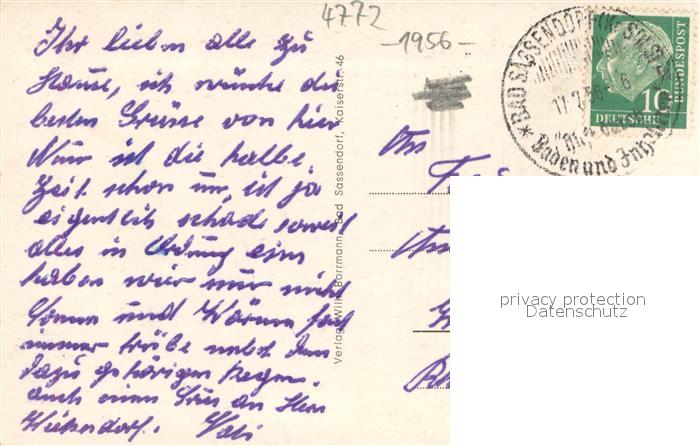 4772
-1956-
Ihr lieben alle zu
Hause, ich wünsche die
besten Grüsse von hier
Nun ist die halbe
Zeit schon um, ist ja
eigentlich schade soweit
alles in Ordnung ein
haben wir nur nicht
Sonne und Wärme fast
immer trübe nebst dem
dazu gehörigen Regen.
auch einen Gruss an Herr
Verlag: Willi Borrmann, Bad Sassendorf, Kaiserstr. 46
BAD SASSENDORF (KR SOEST)
17.7.56
Baden und
10
DEUTSCHE
BUNDESPOST
privacy protection
Datenschutz